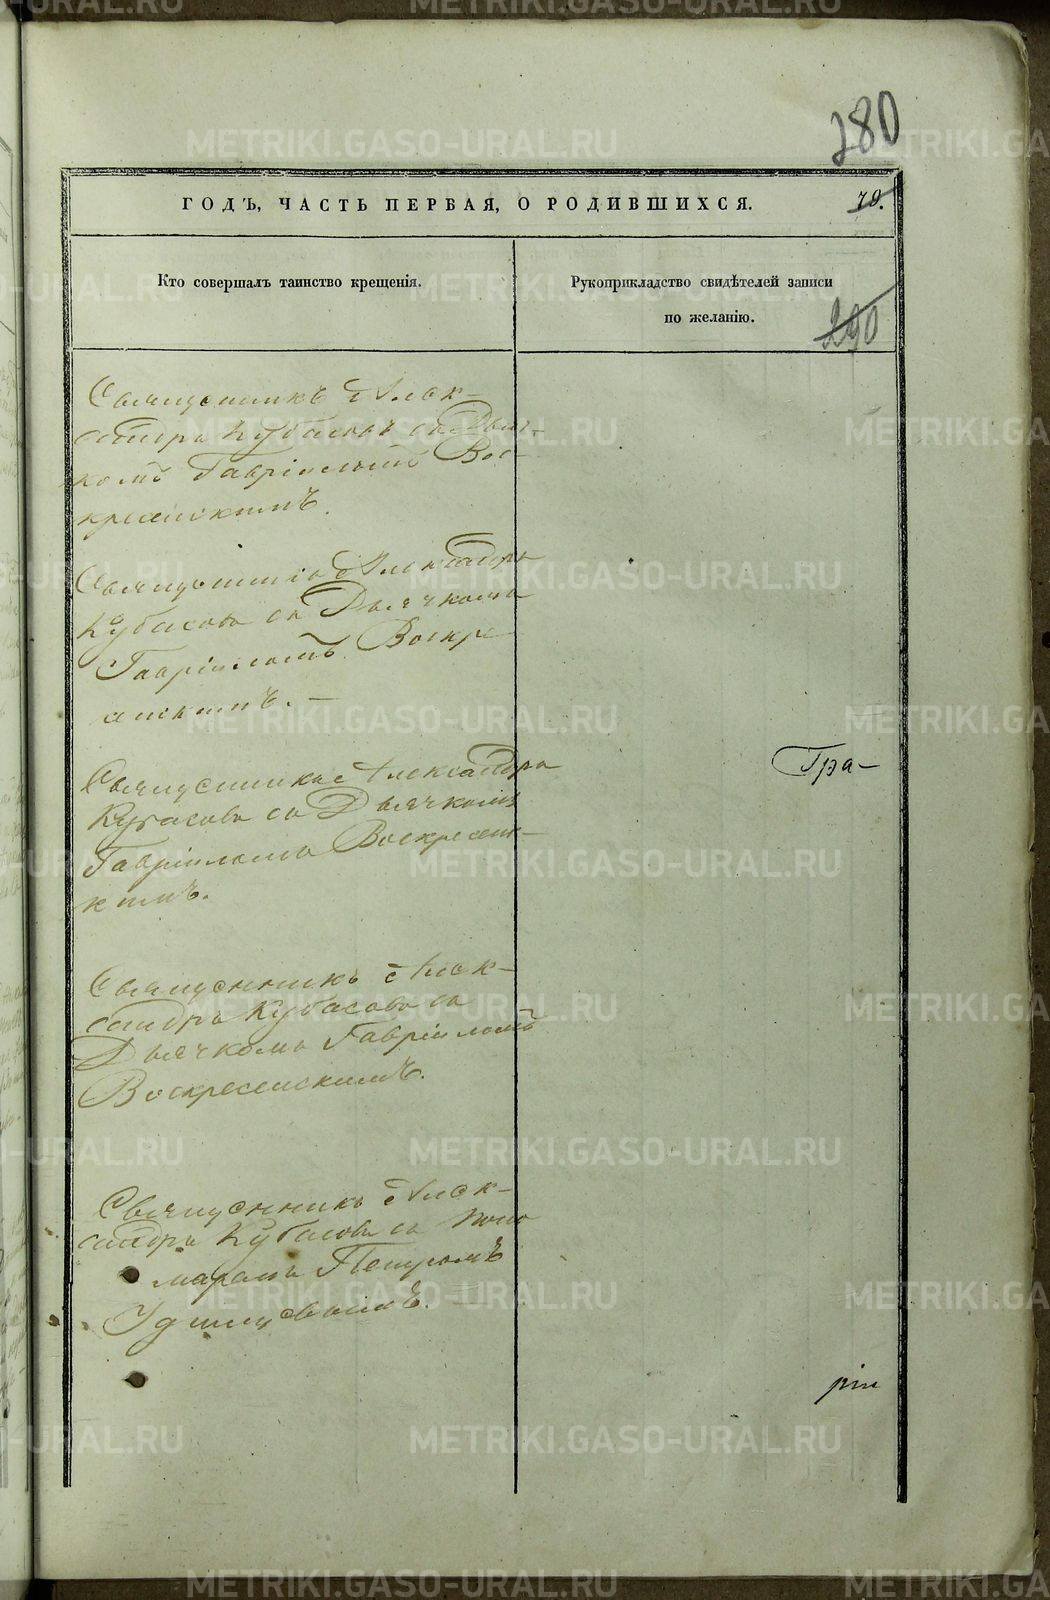 280
ГОДЪ, ЧАСТЬ ПЕРВАЯ, О РОДИВШИХСЯ.
79.
Кто совершалъ таинство крещенія.
Рукоприкладство свидѣтелей записи
по желанію.
290
Священникъ Алек-
сандръ Кубасовъ съ Дьяч-
комъ Гавріиломъ Вос-
кресенскимъ.
Священникъ Александръ
Кубасовъ съ Дьячкомъ
Гавріиломъ Воскре
сенскимъ. —
Гра-
Священникъ Александръ
Кубасовъ съ Дьячкомъ
Гавріиломъ Воскресенс-
кимъ.
Священникъ Алек-
сандръ Кубасовъ съ
Дьячкомъ Гавріиломъ
Воскресенскимъ.
Священникъ Алек-
сандръ Кубасовъ съ Поно
маремъ Петромъ
Удинцовымъ. —
METRIKI.GASO-URAL.RU